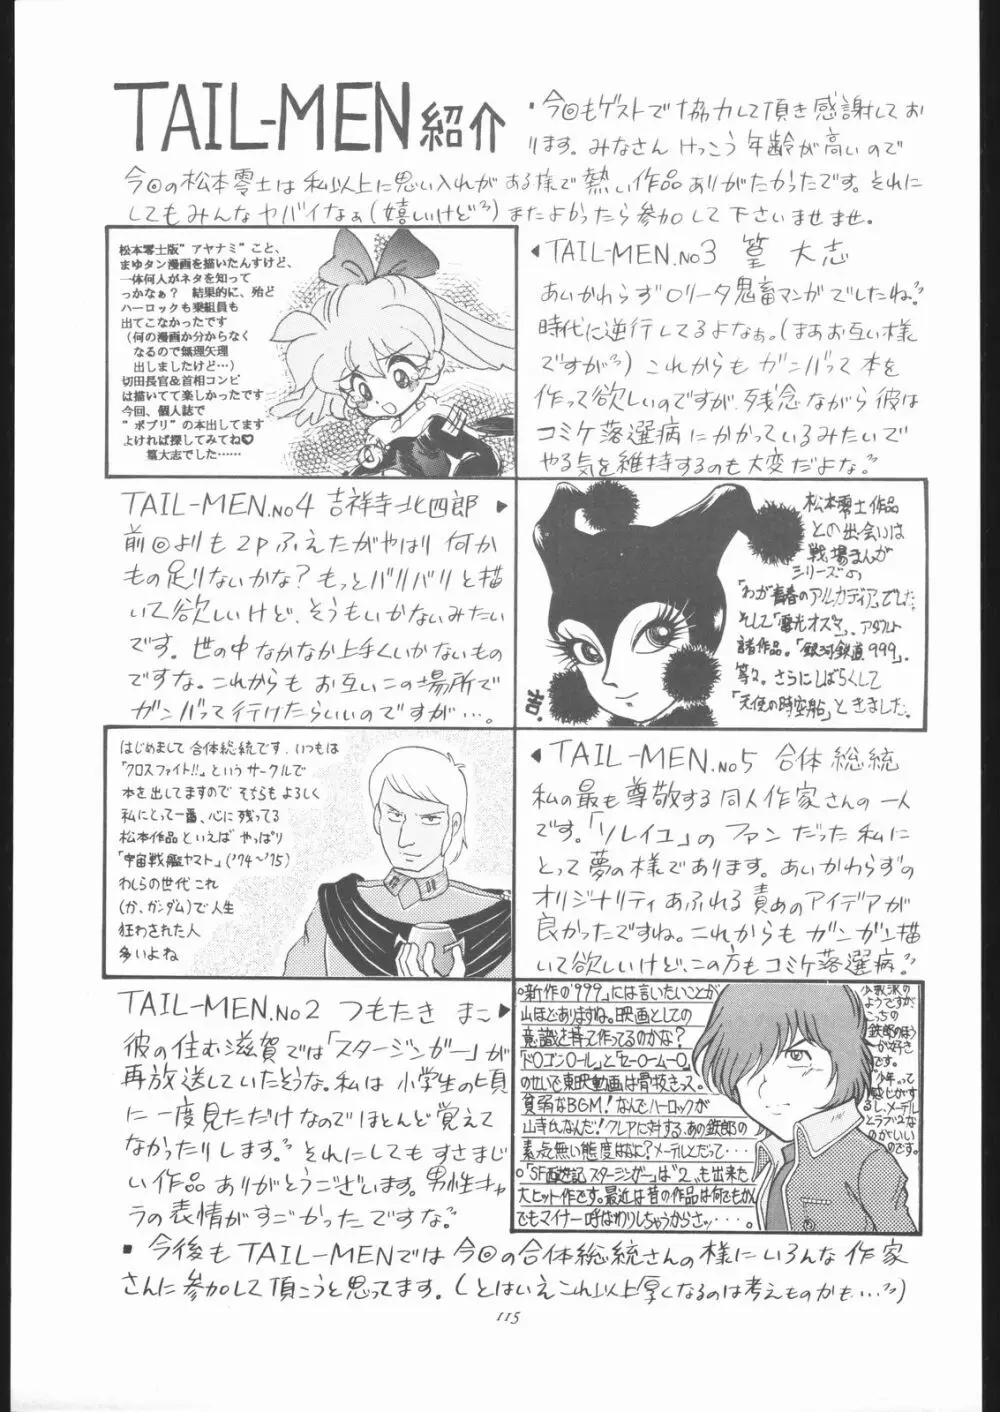 TAIL-MEN 紹介
・今回もゲストで協力して頂き感謝してお
ります。みなさん けっこう 年齢が高いので
今回の松本零士は私以上に思い入れがある様で熱い作品ありがたかったです。それに
してもみんなヤバイなぁ(嬉しいけど)またよかったら参加して下さいませませ。
松本零士版"アヤナミ"こと、
まゆタン漫画を描いたんすけど、
一体何人がネタを知って
っかなぁ? 結果的に、殆ど
ハーロックも乗組員も
出てこなかったです
(何の漫画か分からなく
なるので無理矢理
出しましたけど…)
切田長官&首相コンビ
は描いてて楽しかったです
今回、個人誌で
"ポプリ"の本出してます
よければ探してみてね♡
篁大志でした……
◀TAIL-MEN.No3 篁 大志
あいかわらずロリータ鬼畜マンガでしたね。
時代に逆行してるよなぁ。(まあお互い様
ですが) これからも ガンバって本を
作って欲しいのですが、残念ながら彼は
コミケ落選病にかかっているみたいで
やる気を維持するのも大変だよな。
TAIL-MEN.No4 吉祥寺北四郎 ▶
前回よりも2Pふえたがやはり何か
もの足りないかな? もっとバリバリと描
いて欲しいけど、そうもいかないみたい
です。世の中なかなか上手くいかないもの
ですな。これからも お互いこの場所で
ガンバって行けたらいいのですが…。
松本零士作品
との出会いは
戦場まんが
シリーズの
「わが青春のアルカディア」でした。
そして「電光オズマ」、アダルト
諸作品。「銀河鉄道999」.
等々。さらにしばらくして
「天使の時空船」ときました。
吉.
はじめまして合体総統です。いつもは
「クロスファイト!!」というサークルで
本を出してますのでそちらもよろしく
私にとって一番、心に残ってる
松本作品といえばやっぱり
「宇宙戦艦ヤマト」('74〜'75)
わしらの世代これ
(か、ガンダム)で人生
狂わされた人
多いよね
◀TAIL-MEN.No5 合体総統
私の最も尊敬する同人作家さんの一人
です。「ソレイユ」のファンだった私に
とって夢の様であります。あいかわらずの
オリジナリティあふれる責めのアイデアが
良かったですね。これからもガンガン描
いて欲しいけど、この方もコミケ落選病。
TAIL-MEN.No2 つもたき まこ
彼の住む滋賀では「スタージンガー」が
再放送していたそうな。私は小学生の頃
に一度見ただけなのでほとんど覚えて
なかったりします。それにしてもすさまじ
い作品ありがとうございます。男性キャ
ラの表情がすごかったですな。
○新作の「999」には言いたいことが
山ほどありますね。映画としての
意識を持って作ってるのかな?
「ドロゴンロール」と「セーロームーロ」
のせいで東映動画は骨抜きっス。
貧弱なBGM! なんでハーロックが
山寺氏なんだ! クレアに対する、あの鉄郎の
素っ気無い態度はなに? メーテルとだって・・・
○「SF西遊記スタージンガー」は"2"も出来た
大ヒット作です。最近は昔の作品は何でもかん
でもマイナー呼ばわりしちゃうからさッ・・・・。
少数派の
ようですが、
こっちの
鉄郎のほう
が好き
です。
「少年」って
感じがす
るし、メーテル
とラブラブな
のがいい
のです。
・今後もTAIL-MENでは今回の合体総統さんの様にいろんな作家
さんに参加して頂こうと思ってます。(とはいえこれ以上厚くなるのは考えものかも…)
115